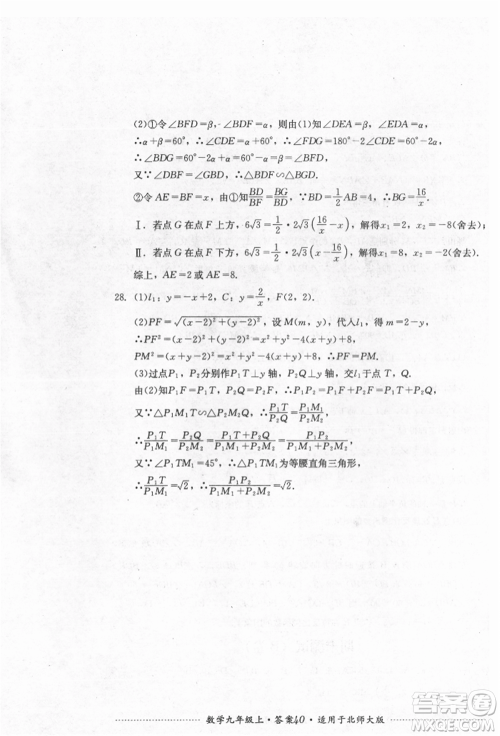 (2)①令∠BFD=β,∠BDF=α,则由(1)知∠DEA=β,∠DFA=α,
∴α+β=60°,∠BFG=60°-α,∴∠FDG=180°-2α-60°,
∴∠BDG=60°-2α+α=60°-α=β,
又∵∠DBF=∠GBD,∴△BDF∽△BGD.
②令AE=BF=x,由①知BD/BF=BG/BD,∵BD=1/2AB=4,∴BG=16/x.
Ⅰ.若点G在点F上方,6√3=1/2·2√3(16/x-x),解得x₁=2,x₂=-8(舍去).
Ⅱ.若点G在点F下方,6√3=1/2·2√3(x-16/x),解得x₁=8,x₂=-2(舍去).
综上,AE=2或AE=8.
28.(1)l₁:y=-x+2,C:y=2/x,F(2,2).
(2)PF=√((x-2)²+(y-2)²),设M(m,y),代入l₁,得
∴PF²=(x-2)²+(y-2)²=x²+y²-4x-4y+8,
PM²=(x+y-2)²=x²+y²-4x-4y+8,∴PM=PF.
(3)过点P₁,P₂分别作P₁T⊥y轴,P₂Q⊥y轴,交l₁于点T,Q,
由(2)知P₁F=P₁M₁,P₂F=P₂M₂,∴P₁P₂=P₁M₁+P₂M₂,
又∵△P₁M₁T∽△P₂M₂Q,∴P₁T/P₂Q=P₁M₁/P₂M₂,
∴P₁T/P₁M₁=P₂Q/P₂M₂=(P₁T+P₂Q)/(P₁M₁+P₂M₂)=(P₁T+P₂Q)/P₁P₂,
又∵∠P₁TM₁=45°,∴△P₁TM₁为等腰直角三角形,
∴P₁T/P₁M₁=√2,∴
数学九年级上·答案40·适用于北师大版